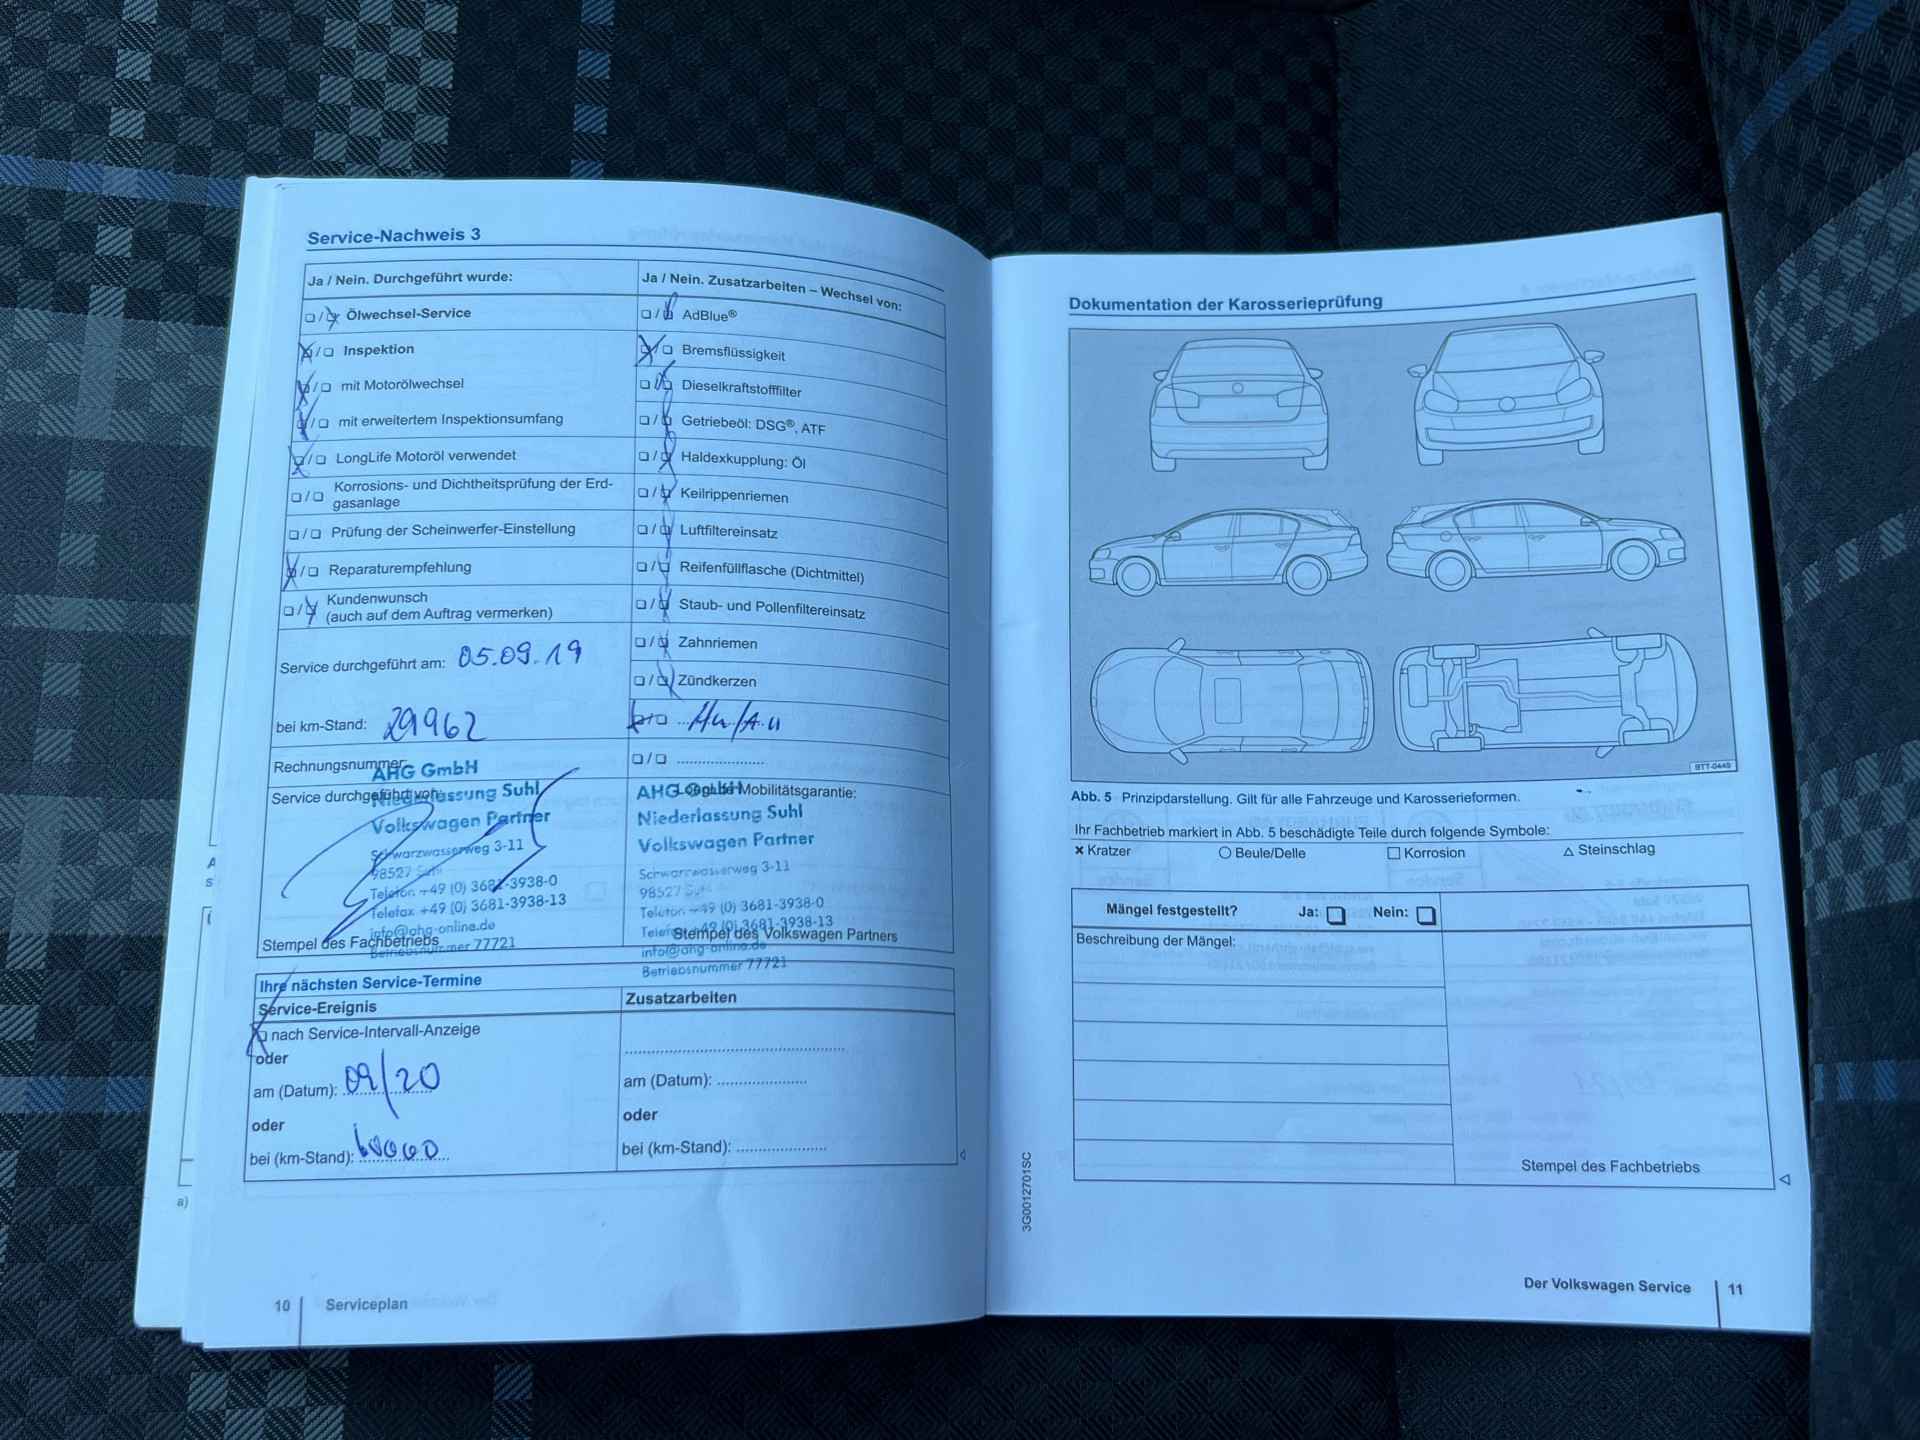 Service-Nachweis 3
Ja / Nein. Durchgeführt wurde:
❏ / ❏ Ölwechsel-Service
❏ / ❏ Inspektion
❏ / ❏ mit Motorölwechsel
❏ / ❏ mit erweitertem Inspektionsumfang
❏ / ❏ LongLife Motoröl verwendet
❏ / ❏ Korrosions- und Dichtheitsprüfung der Erd-
gasanlage
❏ / ❏ Prüfung der Scheinwerfer-Einstellung
❏ / ❏ Reparaturempfehlung
❏ / ❏ Kundenwunsch
(auch auf dem Auftrag vermerken)
Service durchgeführt am: 05.09.19
bei km-Stand: 29962
Rechnungsnummer:
Service durchgeführt von:
AHG GmbH
Niederlassung Suhl
Volkswagen Partner
Schwarzwasserweg 3-11
98527 Suhl
Telefon +49 (0) 3681-3938-0
Telefax +49 (0) 3681-3938-13
info@ahg-online.de
Betriebsnummer 77721
Stempel des Fachbetriebs
Ja / Nein. Zusatzarbeiten – Wechsel von:
❏ / ❏ AdBlue®
❏ / ❏ Bremsflüssigkeit
❏ / ❏ Dieselkraftstofffilter
❏ / ❏ Getriebeöl: DSG®, ATF
❏ / ❏ Haldexkupplung: Öl
❏ / ❏ Keilrippenriemen
❏ / ❏ Luftfiltereinsatz
❏ / ❏ Reifenfüllflasche (Dichtmittel)
❏ / ❏ Staub- und Pollenfiltereinsatz
❏ / ❏ Zahnriemen
❏ / ❏ Zündkerzen
❏ / ❏ Hu/Au
❏ / ❏ ......................
LongLife Mobilitätsgarantie:
AHG GmbH
Niederlassung Suhl
Volkswagen Partner
Schwarzwasserweg 3-11
98527 Suhl
Telefon +49 (0) 3681-3938-0
Telefax +49 (0) 3681-3938-13
info@ahg-online.de
Betriebsnummer 77721
Stempel des Volkswagen Partners
Ihre nächsten Service-Termine
Service-Ereignis
❏ nach Service-Intervall-Anzeige
oder
am (Datum): 09/20
oder
bei (km-Stand): 60000
Zusatzarbeiten
am (Datum): ....................
oder
bei (km-Stand): ....................
10 Serviceplan
a)
Dokumentation der Karosserieprüfung
BTT-0449
Abb. 5 Prinzipdarstellung. Gilt für alle Fahrzeuge und Karosserieformen.
Ihr Fachbetrieb markiert in Abb. 5 beschädigte Teile durch folgende Symbole:
× Kratzer ○ Beule/Delle □ Korrosion △ Steinschlag
Mängel festgestellt? Ja: ❏ Nein: ❏
Beschreibung der Mängel:
Stempel des Fachbetriebs
3G0012701SC
Der Volkswagen Service 11